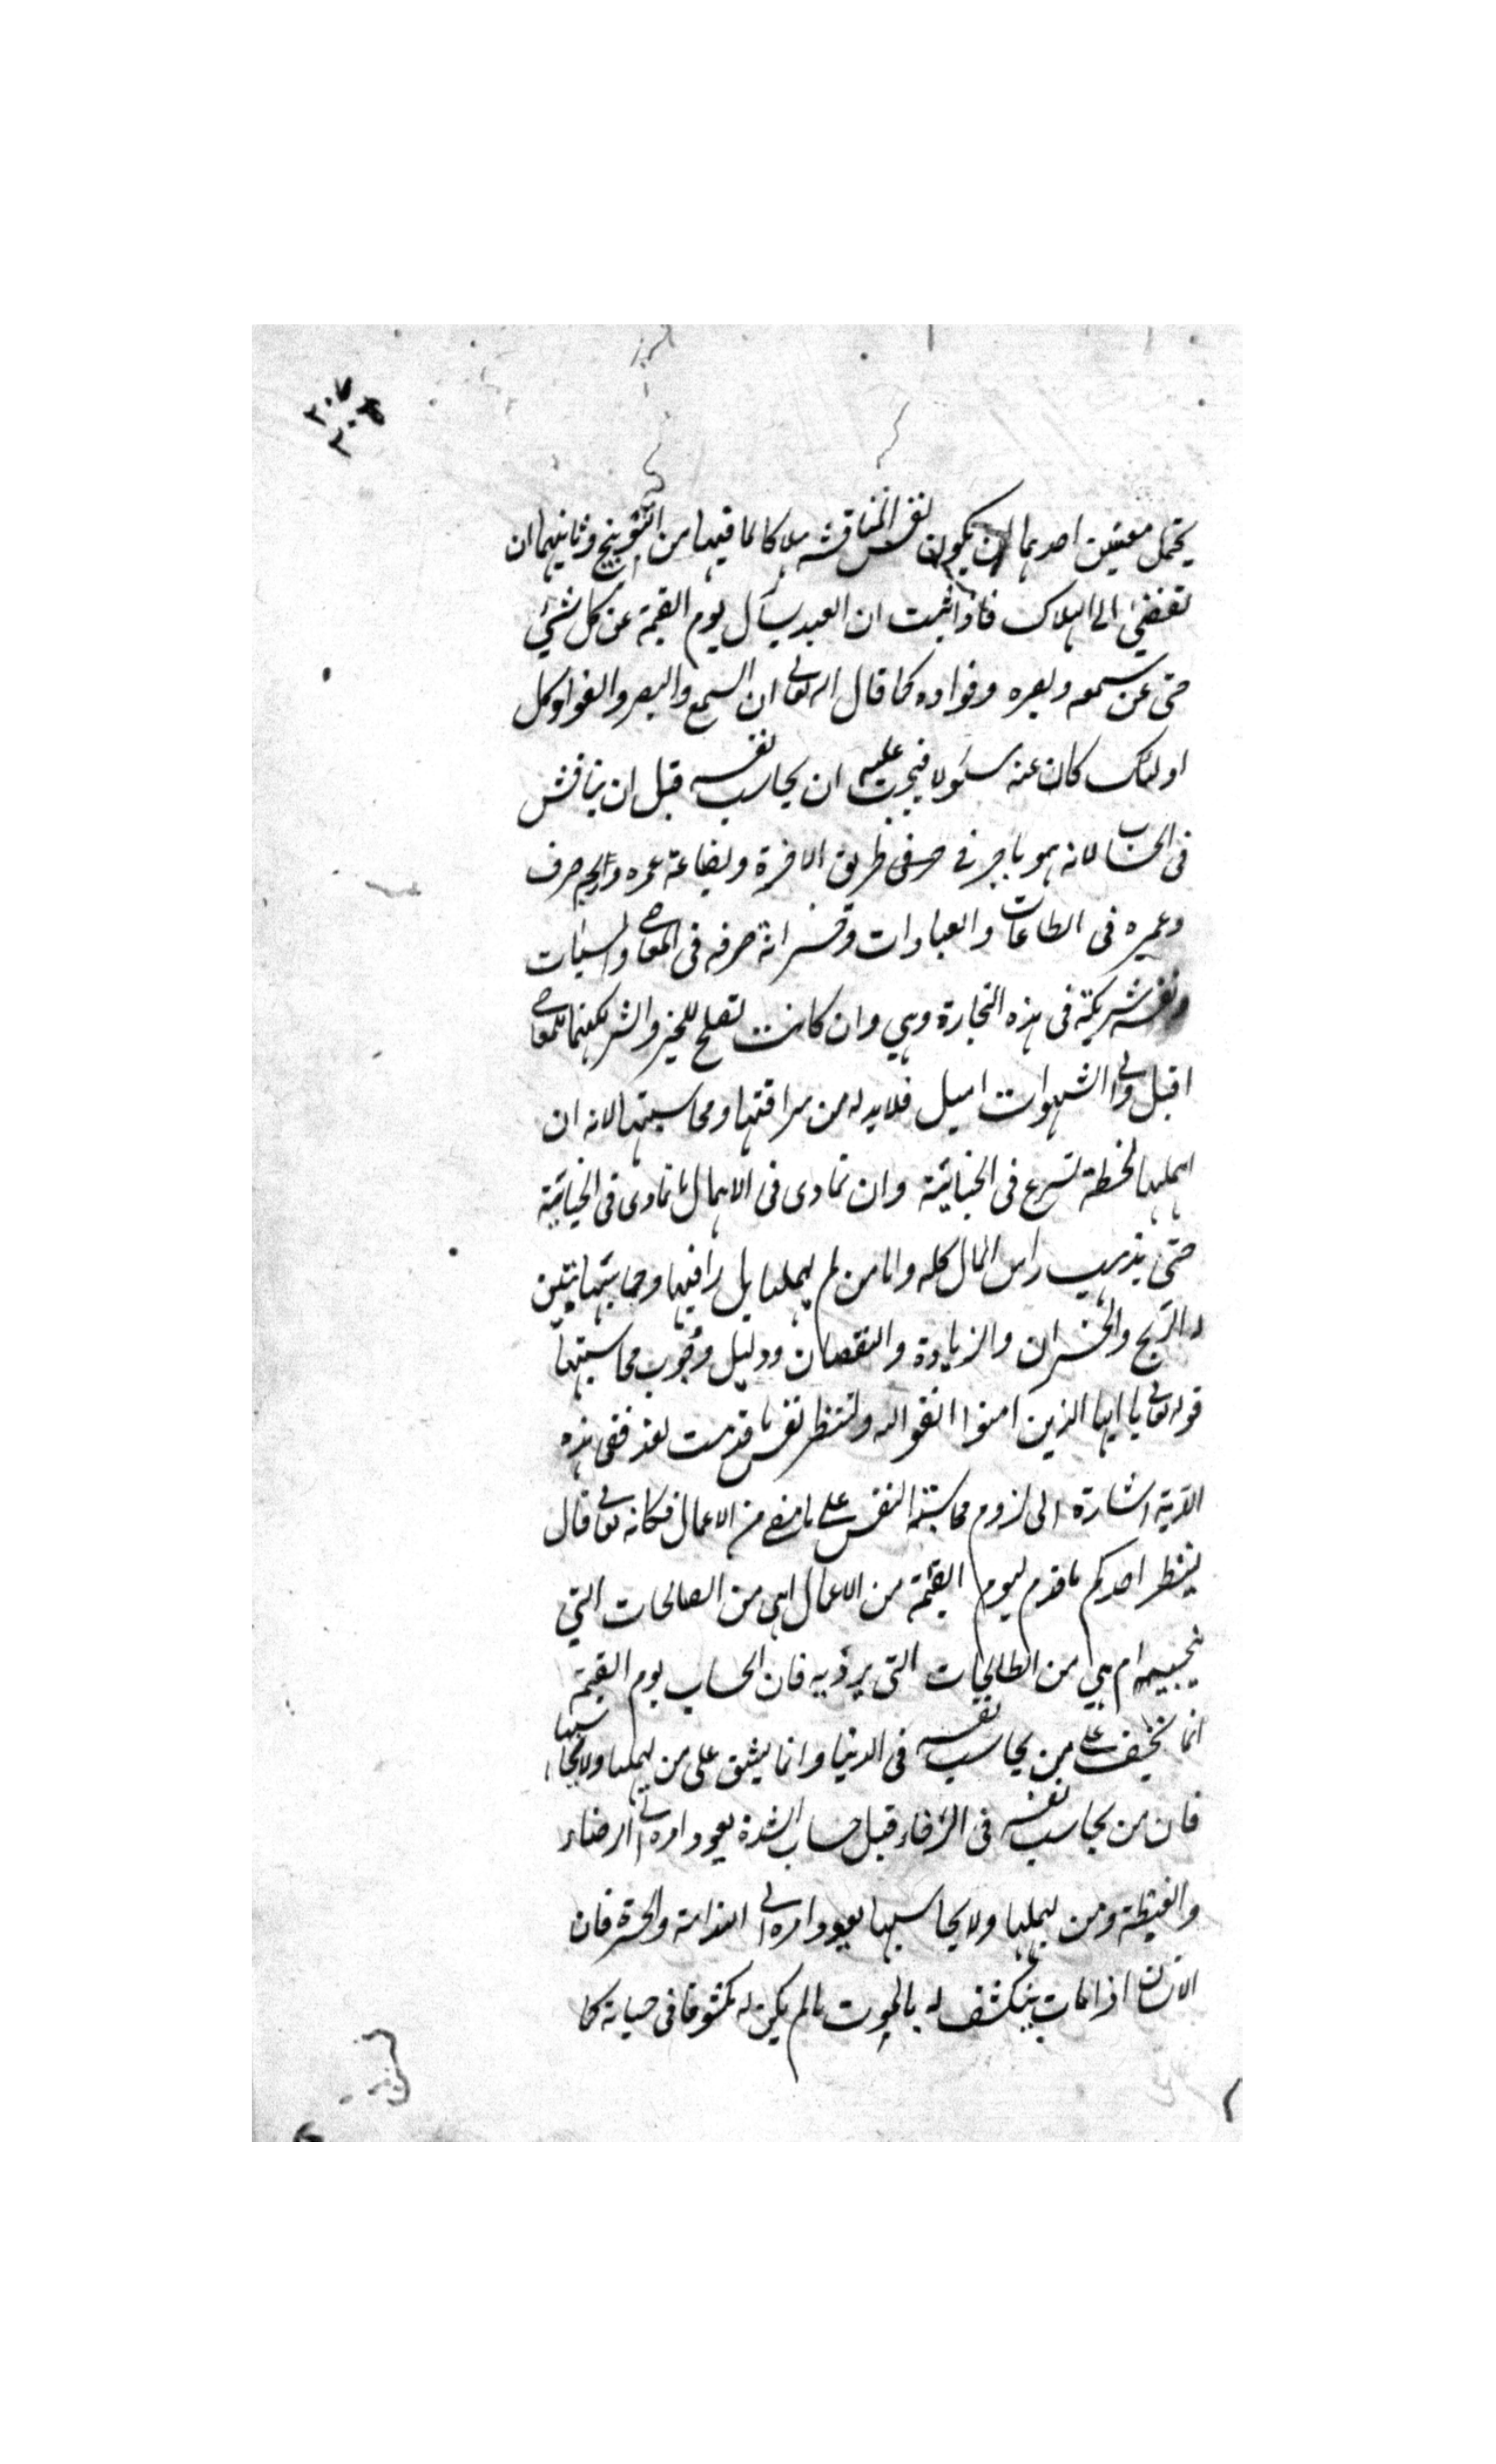 يحتمل معنيين احدهما ان يكون نفس المناقشة هلاكا لما فيها من التوبيخ وثانيهما ان
تفضئ الى الهلاك فاذا ثبت ان العبد يسأل يوم القيمة عن كل شئ
حتى عن سمعه وبصره وفواده كما قال الله تعالى ان السمع والبصر والفواد كل
اولئك كان عنه مسئولا فيجب عليه ان يحاسب نفسه قبل ان يناقش
فى الحساب لانه هو تاجر فى طريق الاخرة وبضاعة عمره وربحه صرف
وعمره فى الطاعات والعبادات وخسرانه صرفه فى المعاصى والسيئات
ونفسه شريكة فى هذه التجارة وهي وان كانت تصلح للخير والشر لكنها للمعاصى
اقبل والى الشهوات اميل فلابد له من مراقبتها ومحاسبتها لانه ان
اهملها لحظة تسرع فى الخيانة وان تمادى فى الاهمال تمادى فى الخيانة
حتى يذهب راس المال كله واما من لم يهملها بل راقبها وحاسبها تبين
له الربح والخسران والزيادة والنقصان ودليل وجوب محاسبتها
قوله تعالى يا ايها الذين امنوا اتقوا الله ولتنظر نفس ما قدمت لغد ففى هذه
الاية اشارة الى لزوم محاسبة النفس على ما مضى من الاعمال فكانه تعالى قال
لينظر احدكم ما قدم ليوم القيمة من الاعمال اهى من الصالحات التي
ينجيه ام هي من الطالحات التى يرديه فان الحساب يوم القيمة
انما يخف على من يحاسب نفسه فى الدنيا وانما يشق على من يهملها ولا يحاسبها
فان من يحاسب نفسه فى الرخاء قبل حساب الشدة يعود امره الى الرضاء
والغبطة ومن يهملها ولا يحاسبها يعود امره الى الندامة والحسرة فان
الانسان اذا مات ينكشف له بالموت ما لم يكن له مكشوفا فى حياته كما